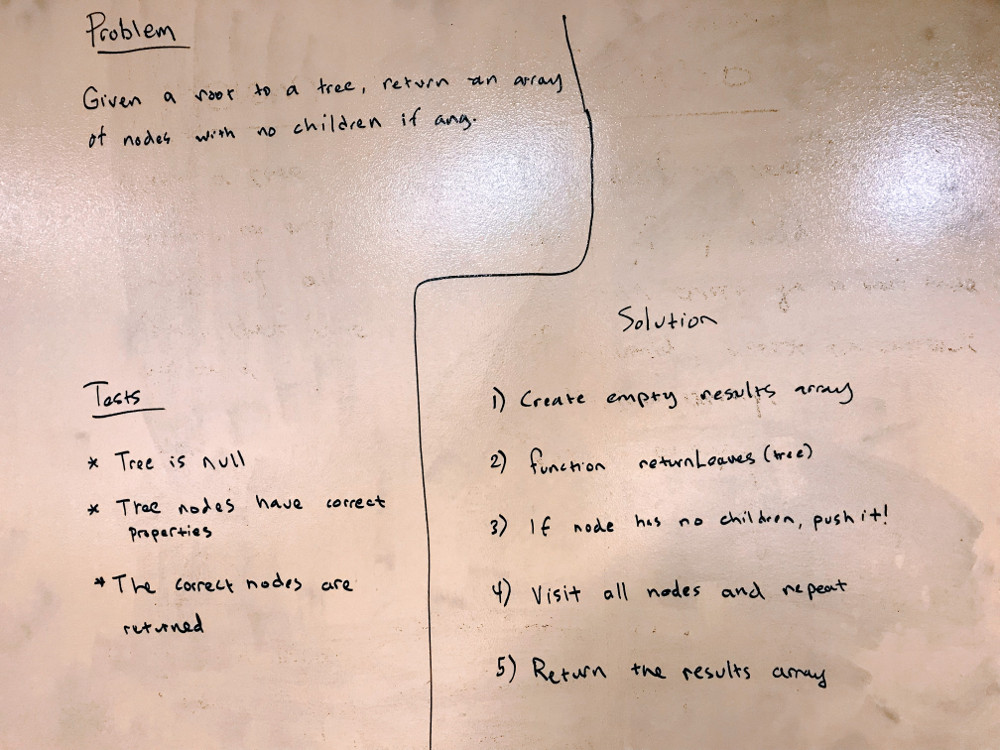 Problem
Given a root to a tree, return an array
of nodes with no children if any.
Tests
* Tree is null
* Tree nodes have correct
properties
* The correct nodes are
returned
Solution
1) Create empty results array
2) function returnLeaves(tree)
3) If node has no children, push it!
4) Visit all nodes and repeat
5) Return the results array